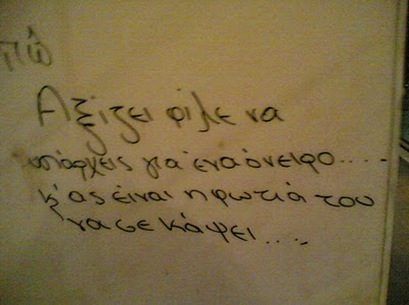 πω
Αξίζει φίλε να
υπάρχεις για ένα όνειρο.....
κ' ας είναι η φωτιά του
να σε κάψει....